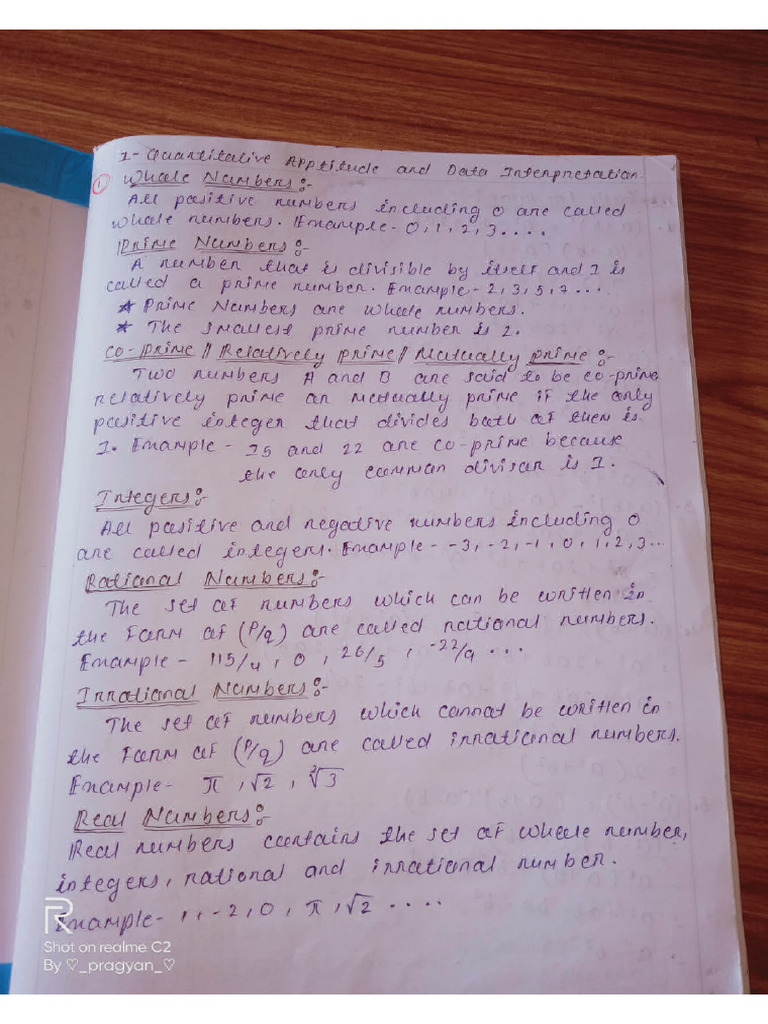 1- Quantitative Apptitude and Data Interpretation.
1 Whole Numbers:-
All positive numbers including 0 are called
whole numbers. Example- 0, 1, 2, 3....
Prime Numbers:-
A number that is divisible by itself and 1 is
called a prime number. Example- 2, 3, 5, 7...
* Prime Numbers are whole numbers.
* The smallest prime number is 2.
Co-prime // Relatively prime // Mutually prime:-
Two numbers A and B are said to be co-prime
relatively prime or mutually prime if the only
positive integer that divides both of them is
1. Example - 15 and 22 are co-prime because
the only common divisor is 1.
Integers:-
All positive and negative numbers including 0
are called integers. Example - -3, -2, -1, 0, 1, 2, 3...
Rational Numbers:-
The set of numbers which can be written in
the form of (P/q) are called rational numbers.
Example - 115/4, 0, 26/5, -22/9...
Irrational Numbers:-
The set of numbers which cannot be written in
the form of (P/q) are called irrational numbers.
Example- π, √2, ∛3
Real Numbers:-
Real numbers contains the set of whole number,
integers, rational and irrational number.
Example- 1, -2, 0, π, √2 ....
R
Shot on realme C2
By ♡_pragyan_♡